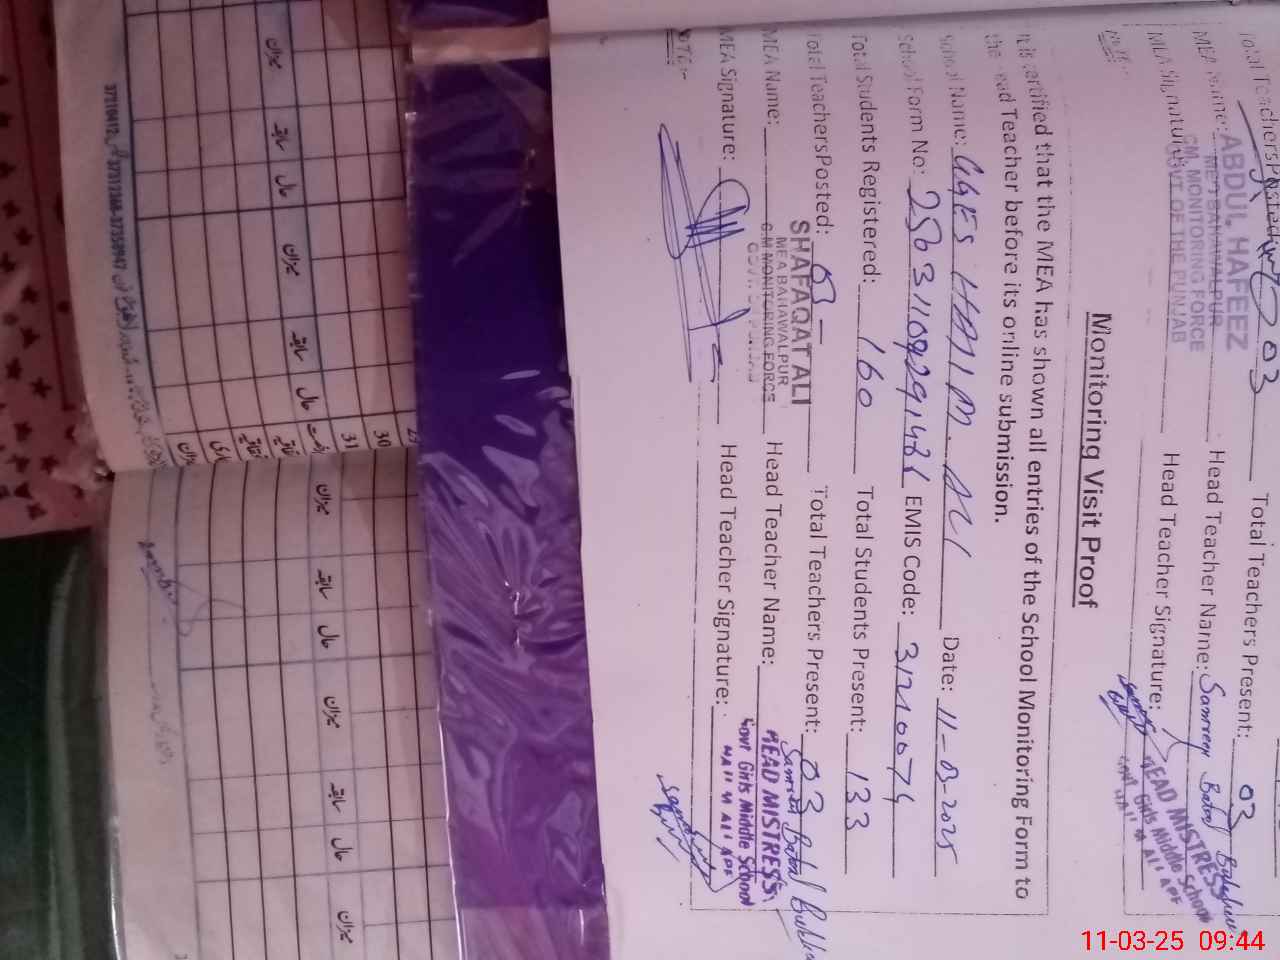 Total Teachers Posted: 03 Total Teachers Present: 03
MEA Name: ABDUL HAFEEZ Head Teacher Name: Samreen Batool
MEA BAHAWALPUR
CM, MONITORING FORCE
GOVT OF THE PUNJAB
MEA Signature: Head Teacher Signature:
HEAD MISTRESS
Govt Girls Middle School
Note:-
Monitoring Visit Proof
It is certified that the MEA has shown all entries of the School Monitoring Form to
the Head Teacher before its online submission.
School Name: GGES HALIM ALI Date: 11-03-2025
School Form No: EMIS Code: 31210074
Total Students Registered: 160 Total Students Present: 133
Total TeachersPosted: 03 Total Teachers Present: 03
MEA Name: SHAFAQAT ALI Head Teacher Name: Samreen Batool
MEA BAHAWALPUR
C.M MONITORING FORCE
MEA Signature: Head Teacher Signature:
HEAD MISTRESS
Govt Girls Middle School
Note:-
میزان سابقہ حال میزان سابقہ حال
30
31
میزان سابقہ حال میزان سابقہ حال میزان
11-03-25 09:44